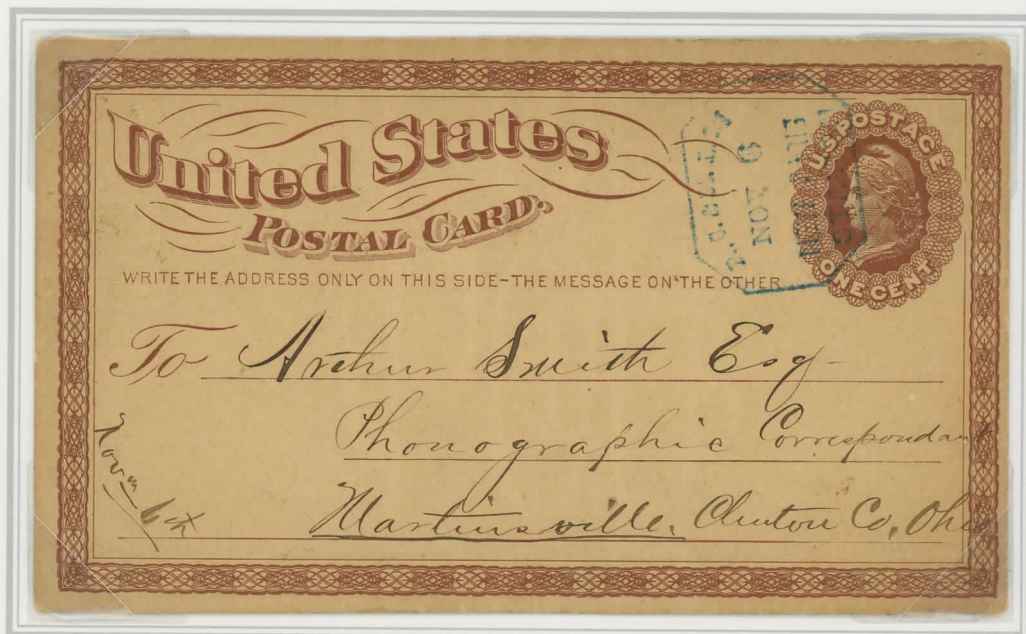 United States
Postal Card.
WRITE THE ADDRESS ONLY ON THIS SIDE-THE MESSAGE ON THE OTHER
U.S. POSTAGE
ONE CENT
NOV 6
To Arthur Smith Esq
Phonographic Correspondant
Martinsville, Clinton Co, Ohio
Novm 6th